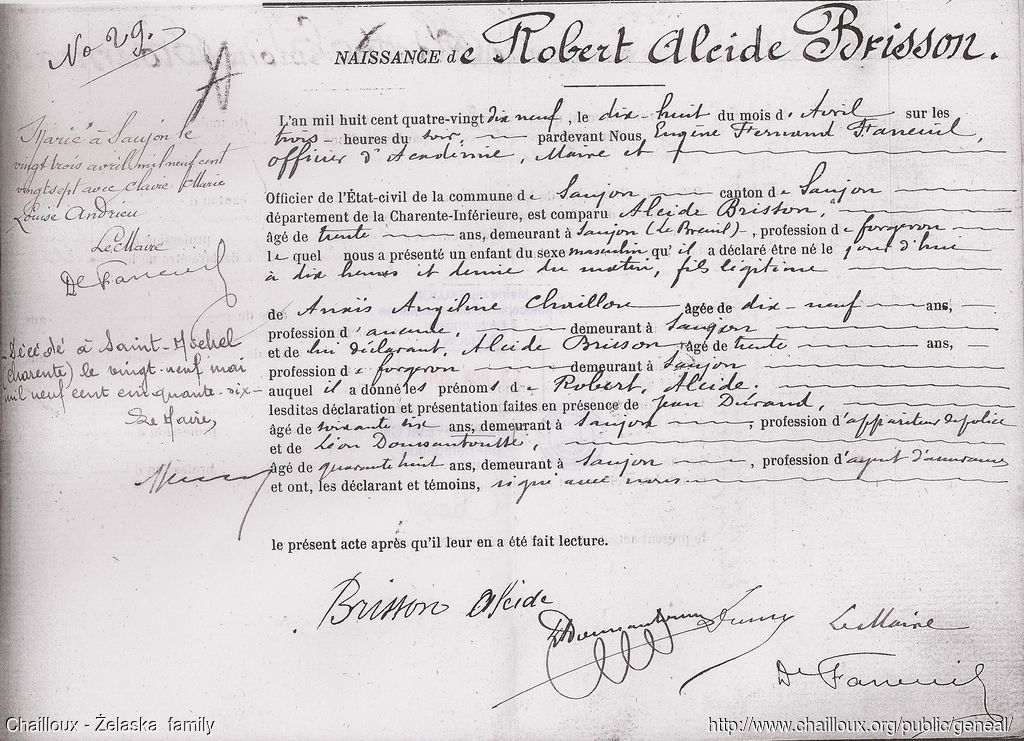 No 29.
NAISSANCE de Robert Alcide Brisson.
L'an mil huit cent quatre-vingt dix neuf, le dix huit du mois d' Avril sur les
trois heures du soir, pardevant Nous, Eugène Fernand Faneuil,
officier d'Académie, Maire et
Officier de l'État-civil de la commune de Saujon canton de Saujon
département de la Charente-Inférieure, est comparu Alcide Brisson,
âgé de trente ans, demeurant à Saujon (Le Breuil), profession de forgeron
lequel nous a présenté un enfant du sexe masculin qu'il a déclaré être né le jour d'hui
à dix heures et demie du matin, fils légitime
de Anaïs Angéline Chaillou âgée de dix-neuf ans,
profession d'aucune, demeurant à Saujon
et de lui déclarant, Alcide Brisson âgé de trente ans,
profession de forgeron demeurant à Saujon
auquel il a donné les prénoms de Robert, Alcide.
lesdites déclaration et présentation faites en présence de Jean Durand,
âgé de soixante six ans, demeurant à Saujon, profession d'appariteur de police
et de Léon
âgé de quarante huit ans, demeurant à Saujon, profession d'agent d'assurances
et ont, les déclarant et témoins, signé avec nous
le présent acte après qu'il leur en a été fait lecture.
Marié à Saujon le
vingt trois avril mil neuf cent
vingt sept avec Claire Marie
Louise Andrieu
Le Maire
Dr Faneuil
Décédé à Saint-Michel
(Charente) le vingt-neuf mai
mil neuf cent cinquante-six
Le Maire,
Brisson Alcide
Le Maire
Dr Faneuil
Chailloux - Żelaska family
http://www.chailloux.org/public/geneal/